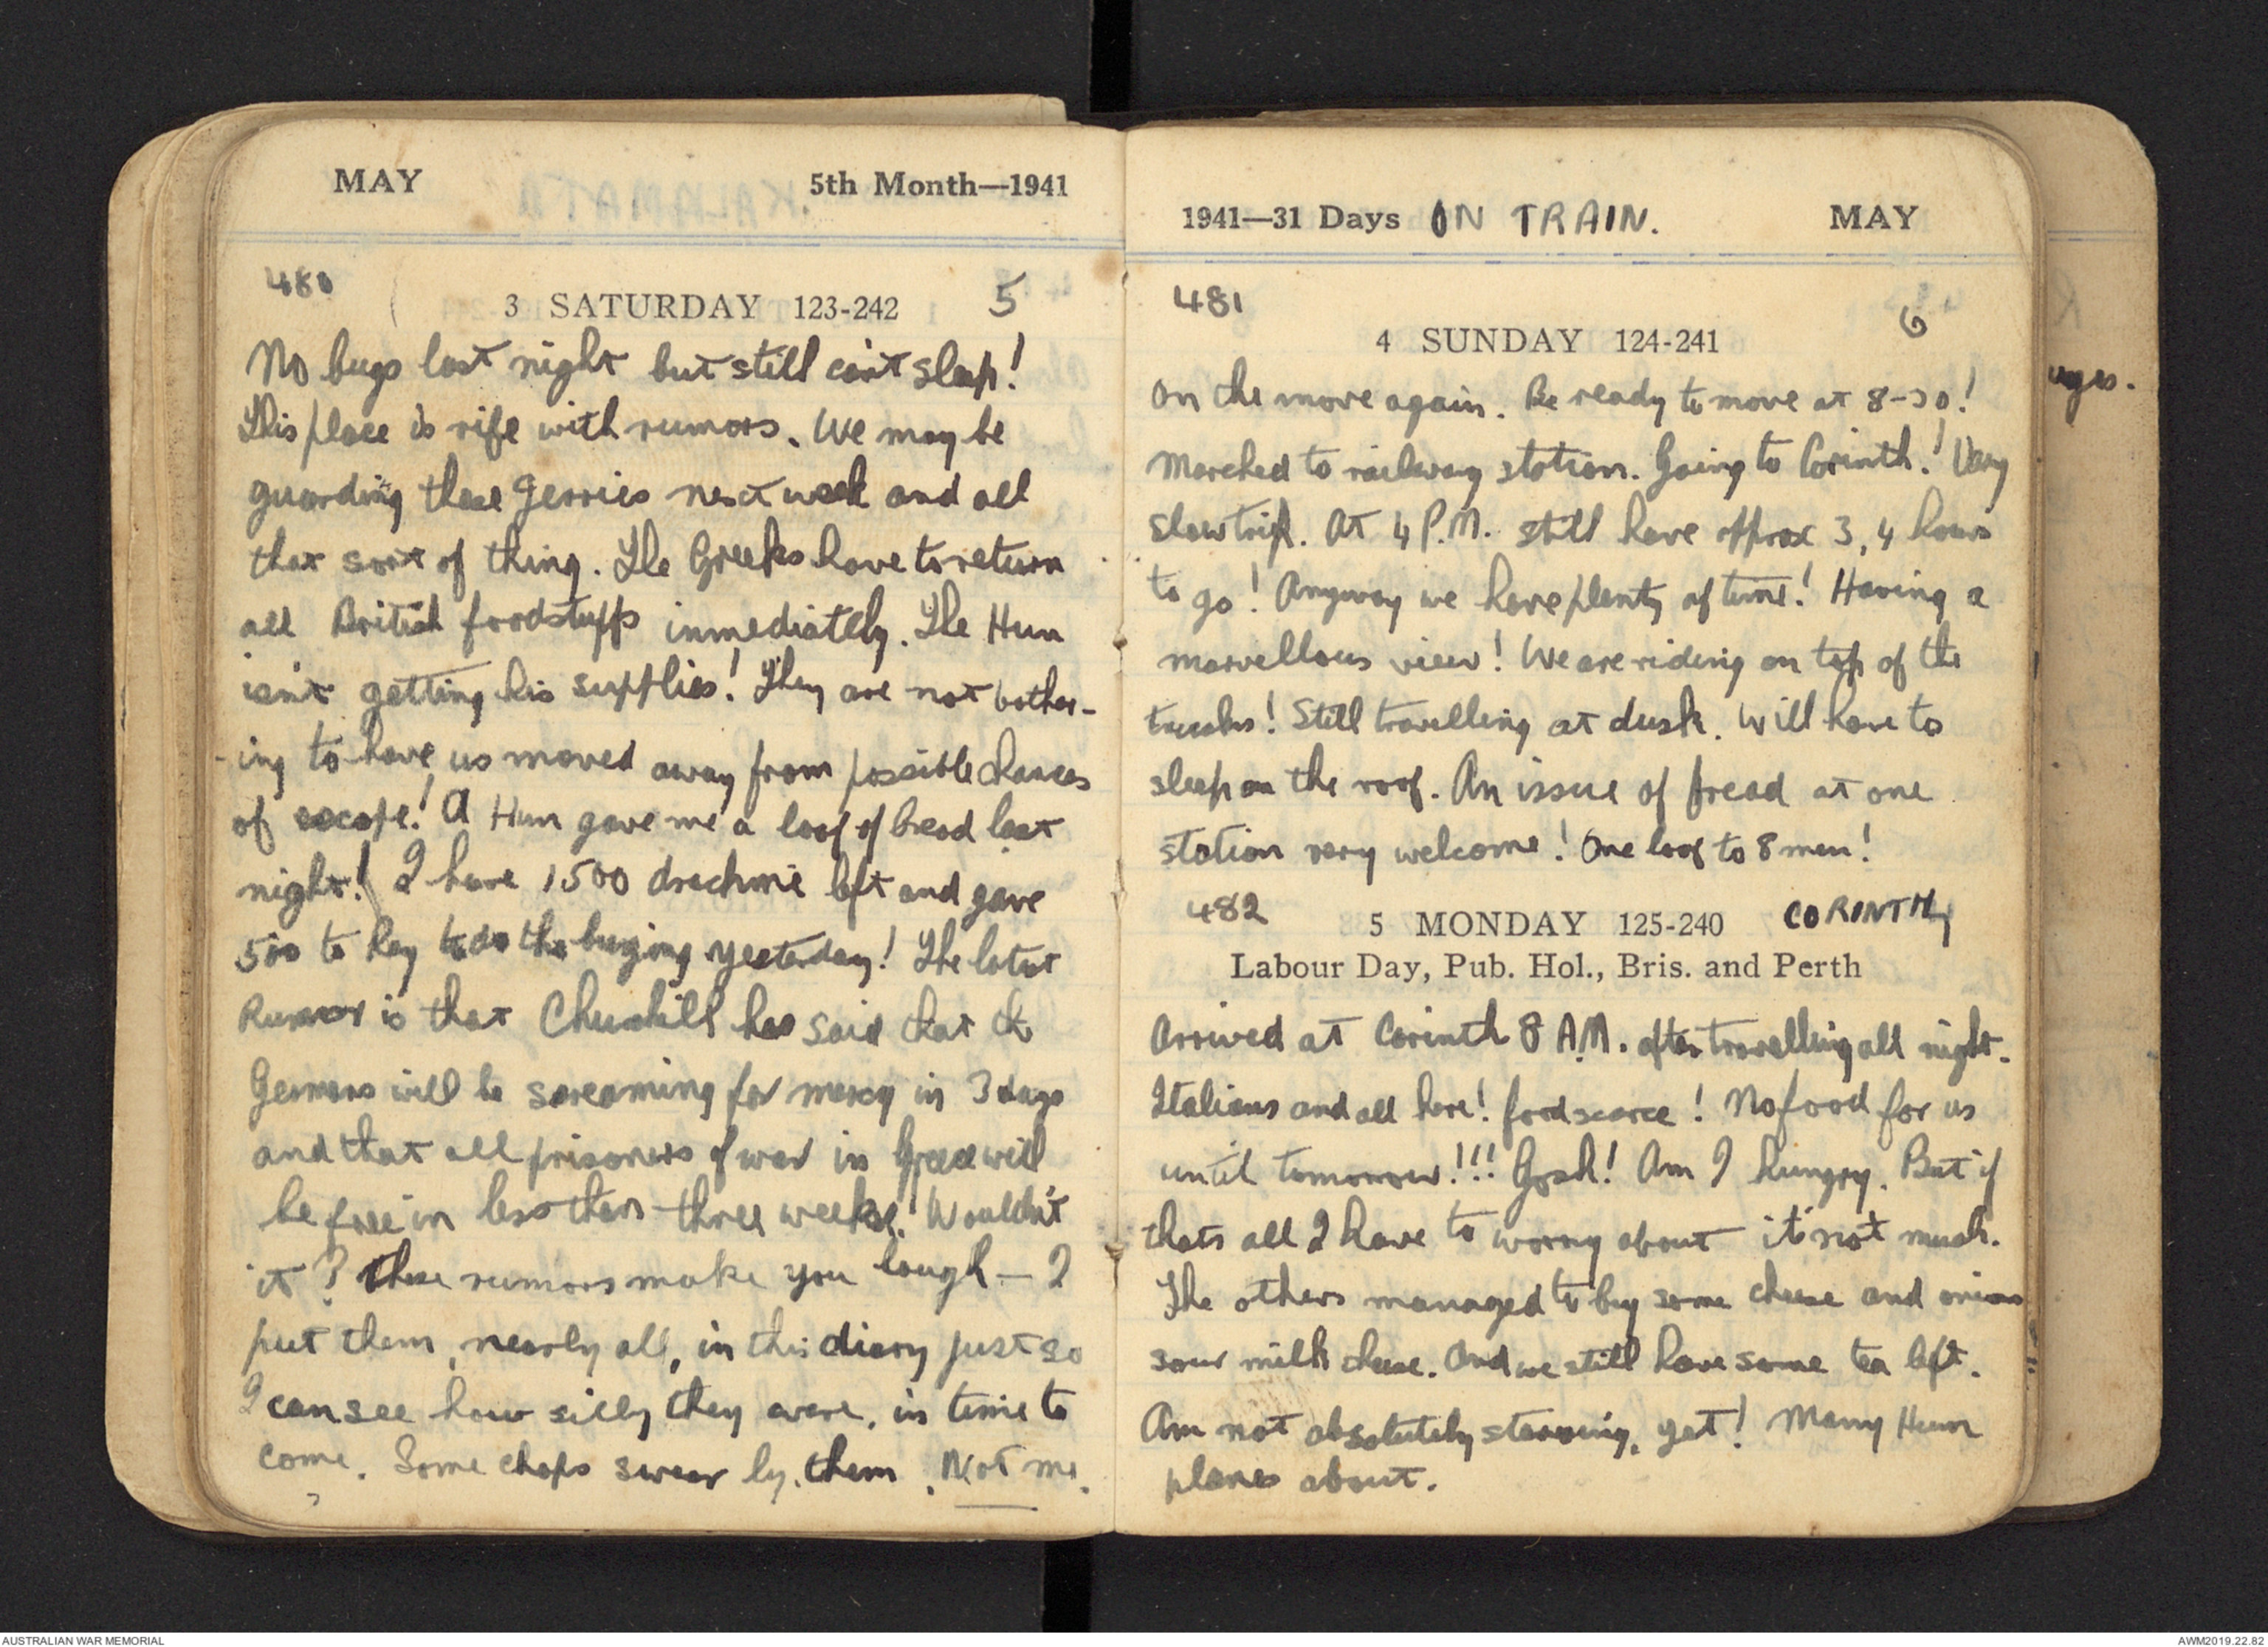 MAY 5th Month—1941
480
3 SATURDAY 123-242 5
No bugs last night but still can't sleep!
This place is rife with rumors. We may be
guarding these Jerries next week and all
that sort of thing. The Greeks have to return
all British foodstuffs immediately. The Hun
isn't getting his supplies! They are not bother-
-ing to have us moved away from possible chances
of escape! A Hun gave me a loaf of bread last
night! I have 1500 drachmie left and gave
500 to Ray to do the buying yesterday! The latest
Rumor is that Churchill has said that the
Germans will be screaming for mercy in 3 days
and that all prisoners of war in Greece will
be free in less than three weeks! Wouldn't
it? These rumors make you laugh — I
put them, nearly all, in this diary just so
I can see how silly they were, in time to
come. Some chaps swear by them. Not me.
1941—31 Days ON TRAIN. MAY
481
4 SUNDAY 124-241 6
On the move again. Be ready to move at 8-30!
Marched to railway station. Going to Corinth! Very
slow trip. At 4 P.M. still have approx 3, 4 hours
to go! Anyway we have plenty of time! Having a
marvellous view! We are riding on top of the
trucks! Still travelling at dusk. Will have to
sleep on the roof. An issue of bread at one
station very welcome! One loaf to 8 men!
482 5 MONDAY 125-240 CORINTH
Labour Day, Pub. Hol., Bris. and Perth
Arrived at Corinth 8 A.M. after travelling all night.
Italians and all here! food scarce! No food for us
until tomorrow!!! Gosh! Am I hungry. But if
thats all I have to worry about it's not much.
The others managed to buy some cheese and onions
sour milk cheese. And we still have some tea left.
Am not absolutely starving, yet! Many Hun
planes about.
AUSTRALIAN WAR MEMORIAL AWM2019.22.82